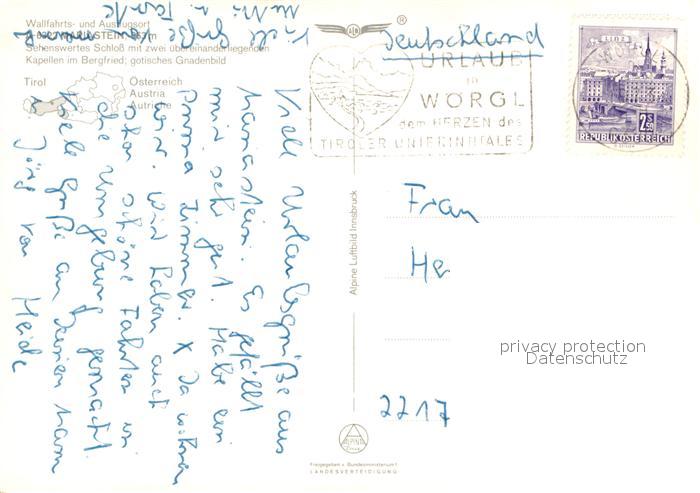 Wallfahrts- und Ausflugsort
Sehenswertes Schloß mit zwei übereinanderliegenden
Kapellen im Bergfried; gotisches Gnadenbild
Tirol
Österreich
Austria
Autriche
Viele Grüße
Viele Urlaubsgrüße aus
Mariastein. Es gefällt
mir sehr gut. Habe ein
Prima Zimmer. X Da wohnen
wir. Wir haben auch
schon schöne Fahrten in
die Umgebung gemacht.
Viele Grüße an
Jörg von Heide
Alpine Luftbild Innsbruck
ALPINE
Freigegeben v. Bundesministerium f.
LANDESVERTEIDIGUNG
Deutschland
URLAUB
in
WÖRGL
dem HERZEN des
TIROLER UNTERINNTALES
LINZ
2S50
REPUBLIK ÖSTERREICH
Frau
He
2217
privacy protection
Datenschutz